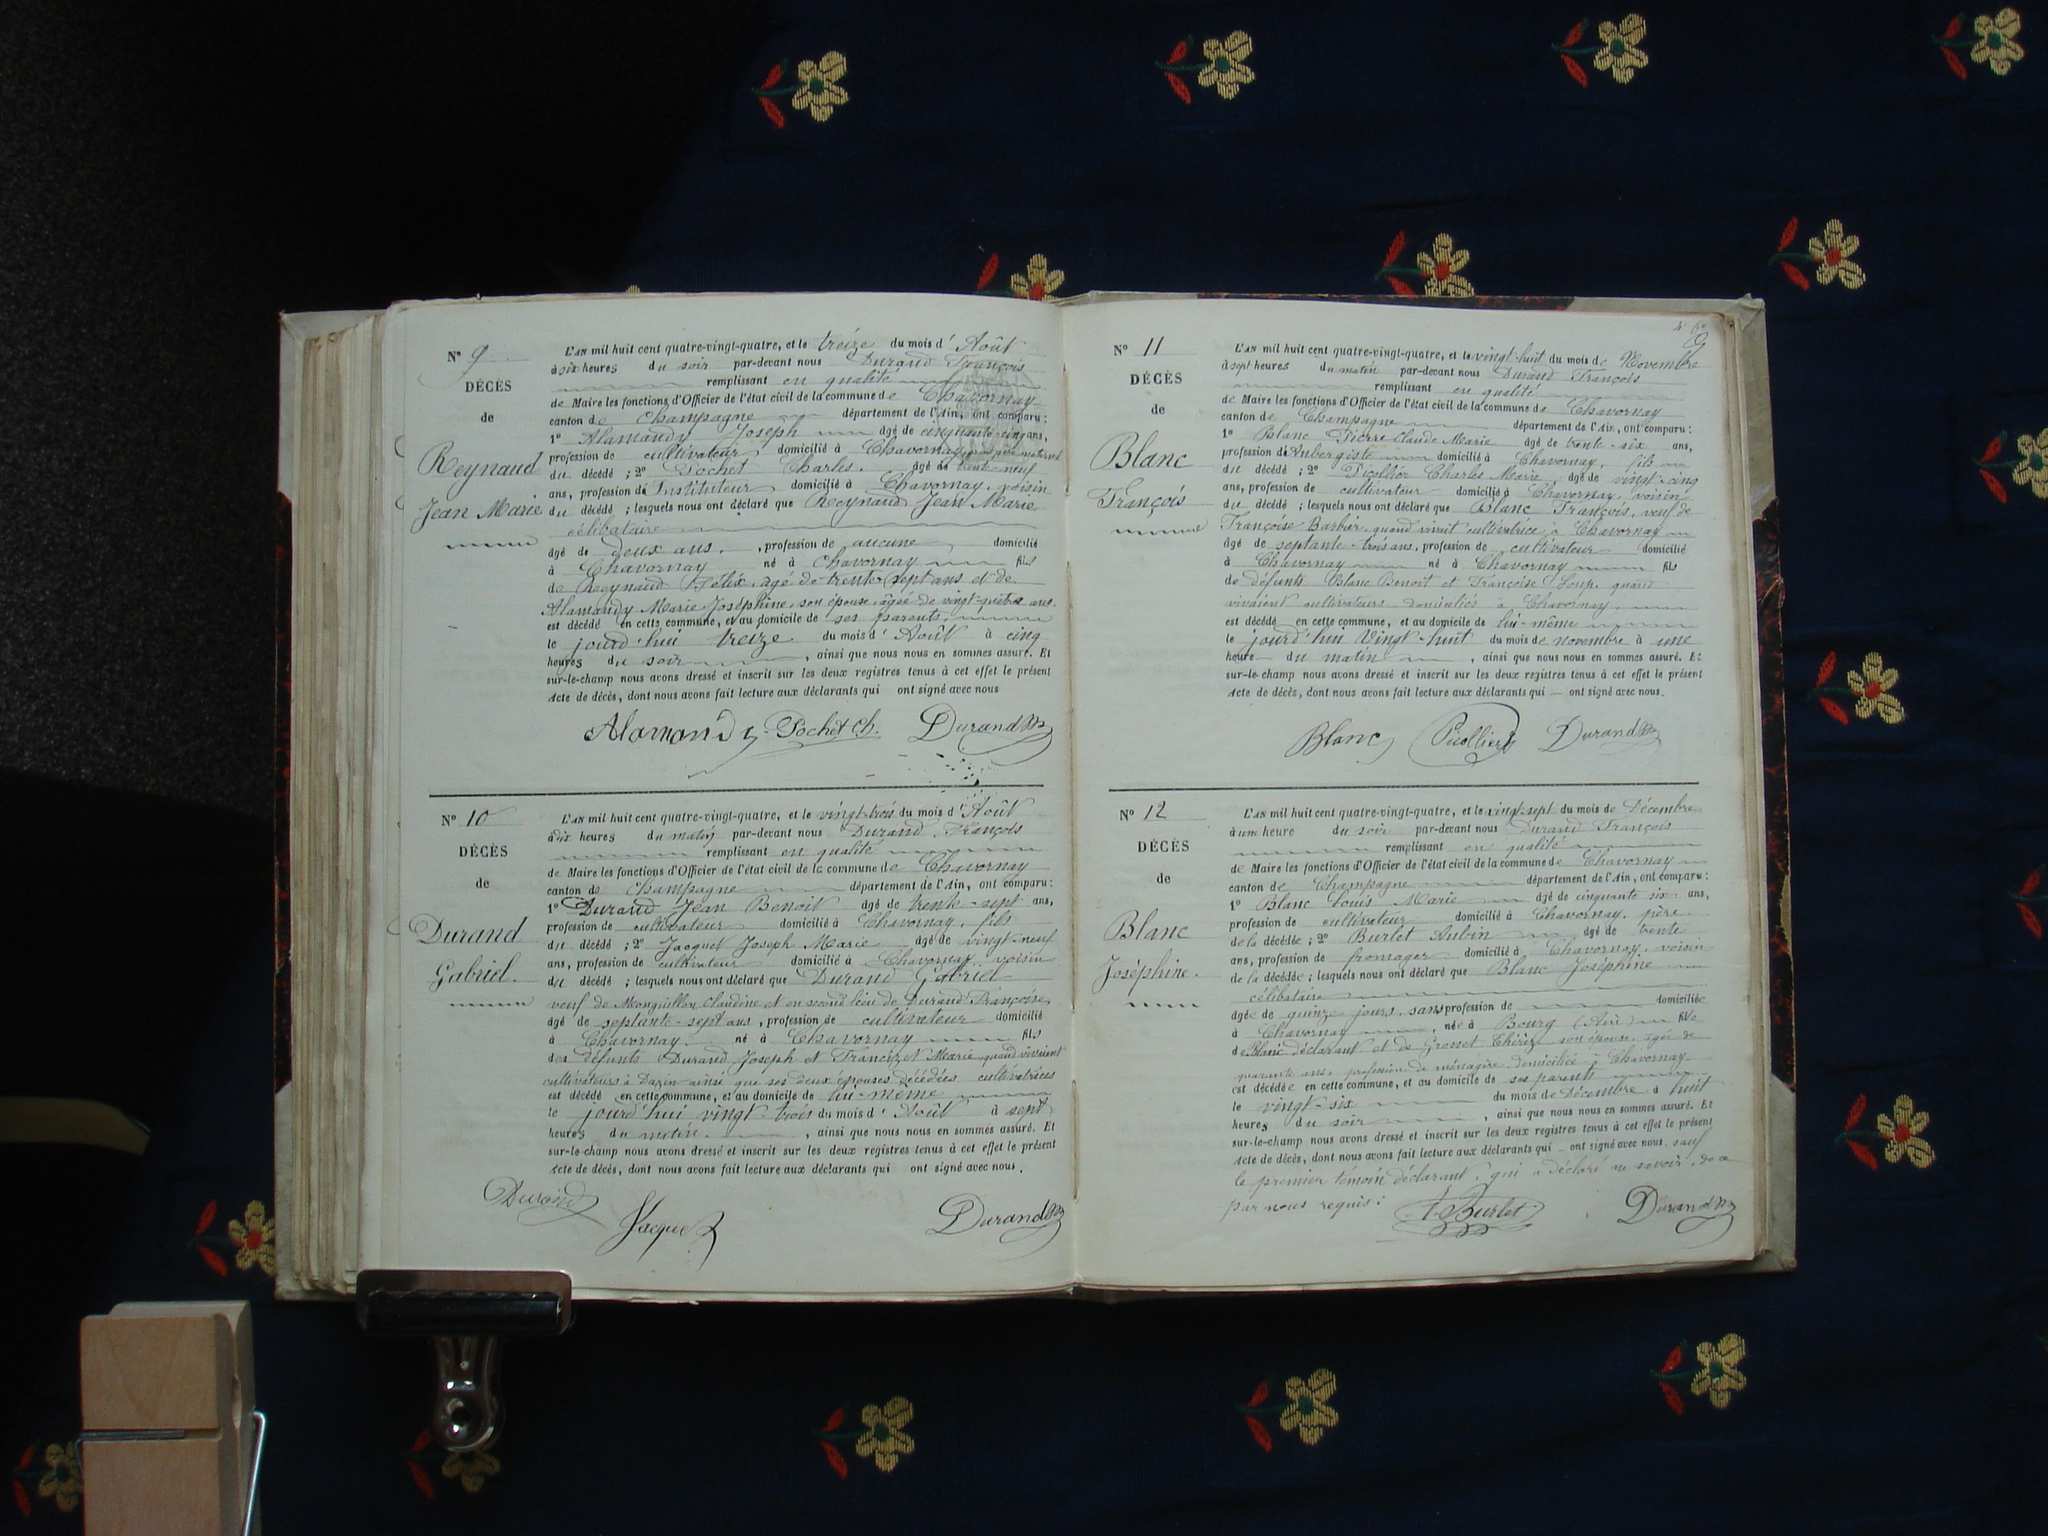 N° 9
DÉCÈS
de
Reynaud
Jean Marie
L'AN mil huit cent quatre-vingt-quatre, et le treize du mois d'Août
à six heures du soir par-devant nous Durand François
remplissant en qualité
de Maire les fonctions d'Officier de l'état civil de la commune de Chavornay
canton de Champagne département de l'Ain, ont comparu :
1° Alamandy Joseph âgé de cinquante-cinq ans,
profession de cultivateur domicilié à Chavornay, maternel
du décédé ; 2° Pochet Charles. âgé de trente-neuf
ans, profession d'Instituteur domicilié à Chavornay, voisin
du décédé ; lesquels nous ont déclaré que Reynaud Jean Marie
célibataire
âgé de deux ans, profession de aucune domicilié
à Chavornay né à Chavornay fils
de Reynaud Félix, agé de trente-sept ans et de
Alamandy Marie Joséphine, son épouse, âgée de vingt- ans
est décédé en cette commune, et au domicile de ses parents,
le jourd'hui treize du mois d'Août à cinq
heures du soir, ainsi que nous nous en sommes assuré. Et
sur-le-champ nous avons dressé et inscrit sur les deux registres tenus à cet effet le présent
Acte de décès, dont nous avons fait lecture aux déclarants qui ont signé avec nous
Alamandy Pochet Ch. Durand
N° 10
DÉCÈS
de
Durand
Gabriel.
L'AN mil huit cent quatre-vingt-quatre, et le vingt-trois du mois d'Août
à dix heures du matin par-devant nous Durand François
remplissant en qualité
de Maire les fonctions d'Officier de l'état civil de la commune de Chavornay
canton de Champagne département de l'Ain, ont comparu :
1° Durand Jean Benoit âgé de trente-sept ans,
profession de cultivateur domicilié à Chavornay, fils
du décédé ; 2° Jacquet Joseph Marie âgé de vingt-neuf
ans, profession de cultivateur domicilié à Chavornay, voisin
du décédé ; lesquels nous ont déclaré que Durand Gabriel
veuf de Monguillon Claudine et en second lieu de Durand Françoise
âgé de septante-sept ans, profession de cultivateur domicilié
à Chavornay né à Chavornay fils
des défunts Durand Joseph et Marie quand vivaient
cultivateurs à Dazin ainsi que ses deux épouses décédées cultivatrices
est décédé en cette commune, et au domicile de lui-même
le jourd'hui vingt-trois du mois d'Août à sept
heures du matin, ainsi que nous nous en sommes assuré. Et
sur-le-champ nous avons dressé et inscrit sur les deux registres tenus à cet effet le présent
Acte de décès, dont nous avons fait lecture aux déclarants qui ont signé avec nous.
Durand Jacquet Durand
N° 11
DÉCÈS
de
Blanc
François
L'AN mil huit cent quatre-vingt-quatre, et le vingt-huit du mois de Novembre
à sept heures du matin par-devant nous Durand François
remplissant en qualité
de Maire les fonctions d'Officier de l'état civil de la commune de Chavornay
canton de Champagne département de l'Ain, ont comparu :
1° Blanc Pierre Claude Marie âgé de trente-six ans,
profession d'Aubergiste domicilié à Chavornay, fils
du décédé ; 2° Picollier Charles Marie, âgé de vingt-cinq
ans, profession de cultivateur domicilié à Chavornay, voisin
du décédé ; lesquels nous ont déclaré que Blanc François, veuf de
Françoise Barbier, quand vivait cultivatrice à Chavornay
âgé de septante-trois ans, profession de cultivateur domicilié
à Chavornay né à Chavornay fils
de défunts Blanc Benoit et Françoise Loup, quand
vivaient cultivateurs domiciliés à Chavornay,
est décédé en cette commune, et au domicile de lui-même
le jourd'hui Vingt-huit du mois de novembre à une
heure du matin, ainsi que nous nous en sommes assuré. Et
sur-le-champ nous avons dressé et inscrit sur les deux registres tenus à cet effet le présent
Acte de décès, dont nous avons fait lecture aux déclarants qui ont signé avec nous.
Blanc Picollier Durand
N° 12
DÉCÈS
de
Blanc
Joséphine.
L'AN mil huit cent quatre-vingt-quatre, et le vingt-sept du mois de Décembre
à une heure du soir par-devant nous Durand François
remplissant en qualité
de Maire les fonctions d'Officier de l'état civil de la commune de Chavornay
canton de Champagne département de l'Ain, ont comparu :
1° Blanc Louis Marie âgé de cinquante six ans,
profession de cultivateur domicilié à Chavornay, père
de la décédée ; 2° Burlet Aubin âgé de trente
ans, profession de fromager domicilié à Chavornay, voisin
de la décédée ; lesquels nous ont déclaré que Blanc Joséphine
célibataire
âgée de quinze jours, sans profession de domiciliée
à Chavornay, née à Bourg (Ain) fille
de Blanc déclarant et de Grosset Thérèze son épouse, agée de
quarante ans, profession de ménagère domiciliée à Chavornay
est décédée en cette commune, et au domicile de ses parents
le vingt-six du mois de Décembre à huit
heures du soir, ainsi que nous nous en sommes assuré. Et
sur-le-champ nous avons dressé et inscrit sur les deux registres tenus à cet effet le présent
Acte de décès, dont nous avons fait lecture aux déclarants qui ont signé avec nous, sauf
le premier témoin déclarant, qui a déclaré ne savoir, de ce
par nous requis :
A. Burlet Durand